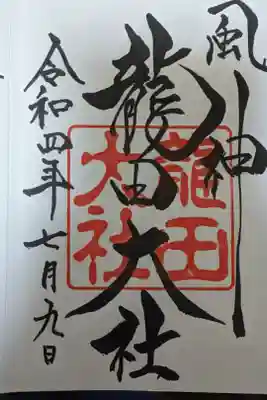 風神
龍田大社
龍田大社
令和四年七月九日